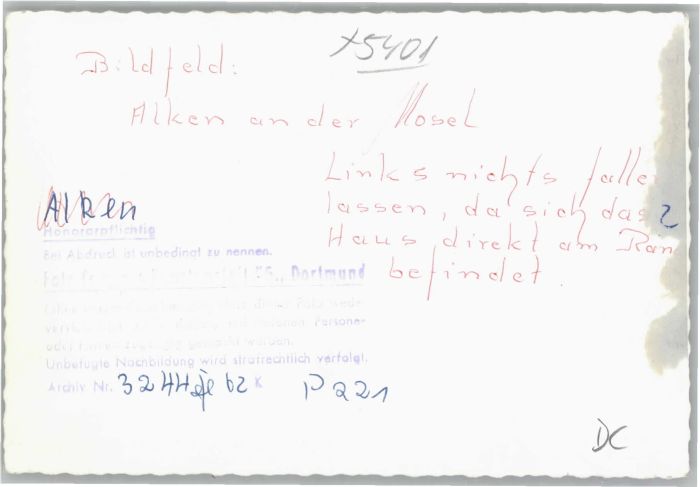 x5401
Bildfeld:
Alken an der Mosel
Links nichts falle
lassen, da sich das
Haus direkt am Ran
befindet.
Alken
Honorarpflichtig
Bei Abdruck ist unbedingt zu nennen.
KG., Dortmund
Unbefugte Nachbildung wird strafrechtlich verfolgt.
Archiv Nr. 3244 62 K P221
DC